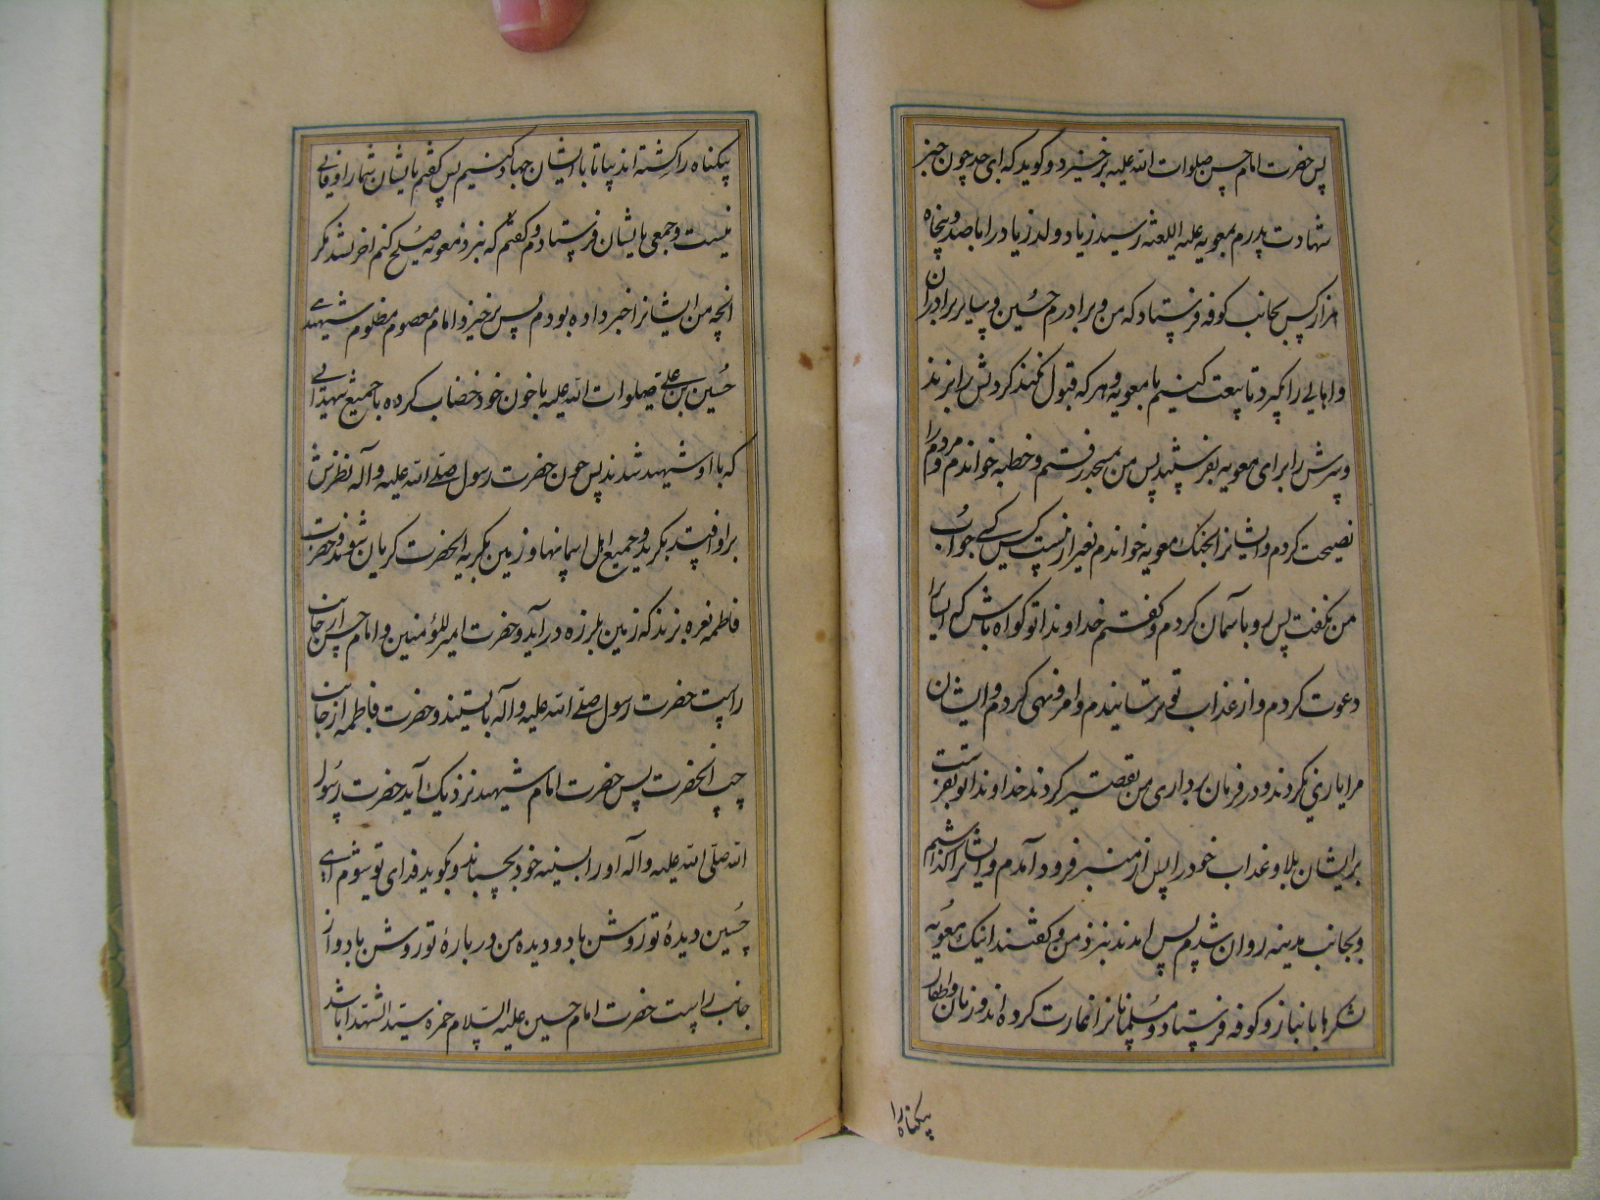 پس حضرت امام حسن صلوات الله علیه برخیزد و کوید که ای جد چون خبر
شهادت پدرم بمعویه علیه اللعنه رسید زیاد ولد زیاد را با صد و پنجاه
هزار کس بجانب کوفه فرستاد که من و برادرم حسین و سایر برادران
و اهالی را بکیرد تا بیعت کنیم با معویه و هر که قبول نکند کردنش را بزند
و سرش را برای معویه بفرستد پس من بمسجد رفتم و خطبه خواندم و مردم را
نصیحت کردم و ایشانرا بجنک معویه خواندم بغیر از بیست کس کسی جواب
من نکفت پس رو بآسمان کردم و کفتم خداوندا تو کواه باش که ایشانرا
دعوت کردم و از عذاب تو ترسانیدم و امر و نهی کردم و ایشان
مرا یاری نکردند و در فرمان برداری من تقصیر کردند خداوندا تو بفرست
بر ایشان بلا و عذاب خود را پس از منبر فرود آمدم و ایشانرا کذاشتم
و بجانب مدینه روان شدم پس امدند بنزد من و کفتند اینک معویه
لشکرها بانبار و کوفه فرستاد و مسلمانانرا غارت کرده اند و زنان و اطفال
بیکناه را
بیکناه را کشته اند بیا تا با ایشان جهاد کنیم پس کفتم بایشان شما را وفائی
نیست و جمعی بایشان فرستادم و کفتم که بنزد معویه صلح کنم اخر نشد مکر
انچه من ایشانرا خبر داده بودم پس برخیزد امام معصوم مظلوم شهید
حسین بن علی صلوات الله علیه با خون خود خضاب کرده با جمیع شهدائی
که با او شهید شدند پس چون حضرت رسول صلی الله علیه و آله نظرش
بر او افتد بکرید و جمیع اهل اسمانها و زمین بکریه انحضرت کریان شوند و حضرت
فاطمه نعره بزند که زمین بلرزه در آید و حضرت امیرالمؤمنین و امام حسن از جانب
راست حضرت رسول صلی الله علیه و آله بایستند و حضرت فاطمه از جانب
چپ انحضرت پس حضرت امام شهید نزدیک آید حضرت رسول
الله صلی الله علیه و آله او را بسینه خود بچسباند و بکوید فدای تو شوم ای
حسین دیدۀ تو روشن باد و دیده من در بارۀ تو روشن باد و از
جانب راست حضرت امام حسین علیه السلام حمزه سید الشهدا باشد